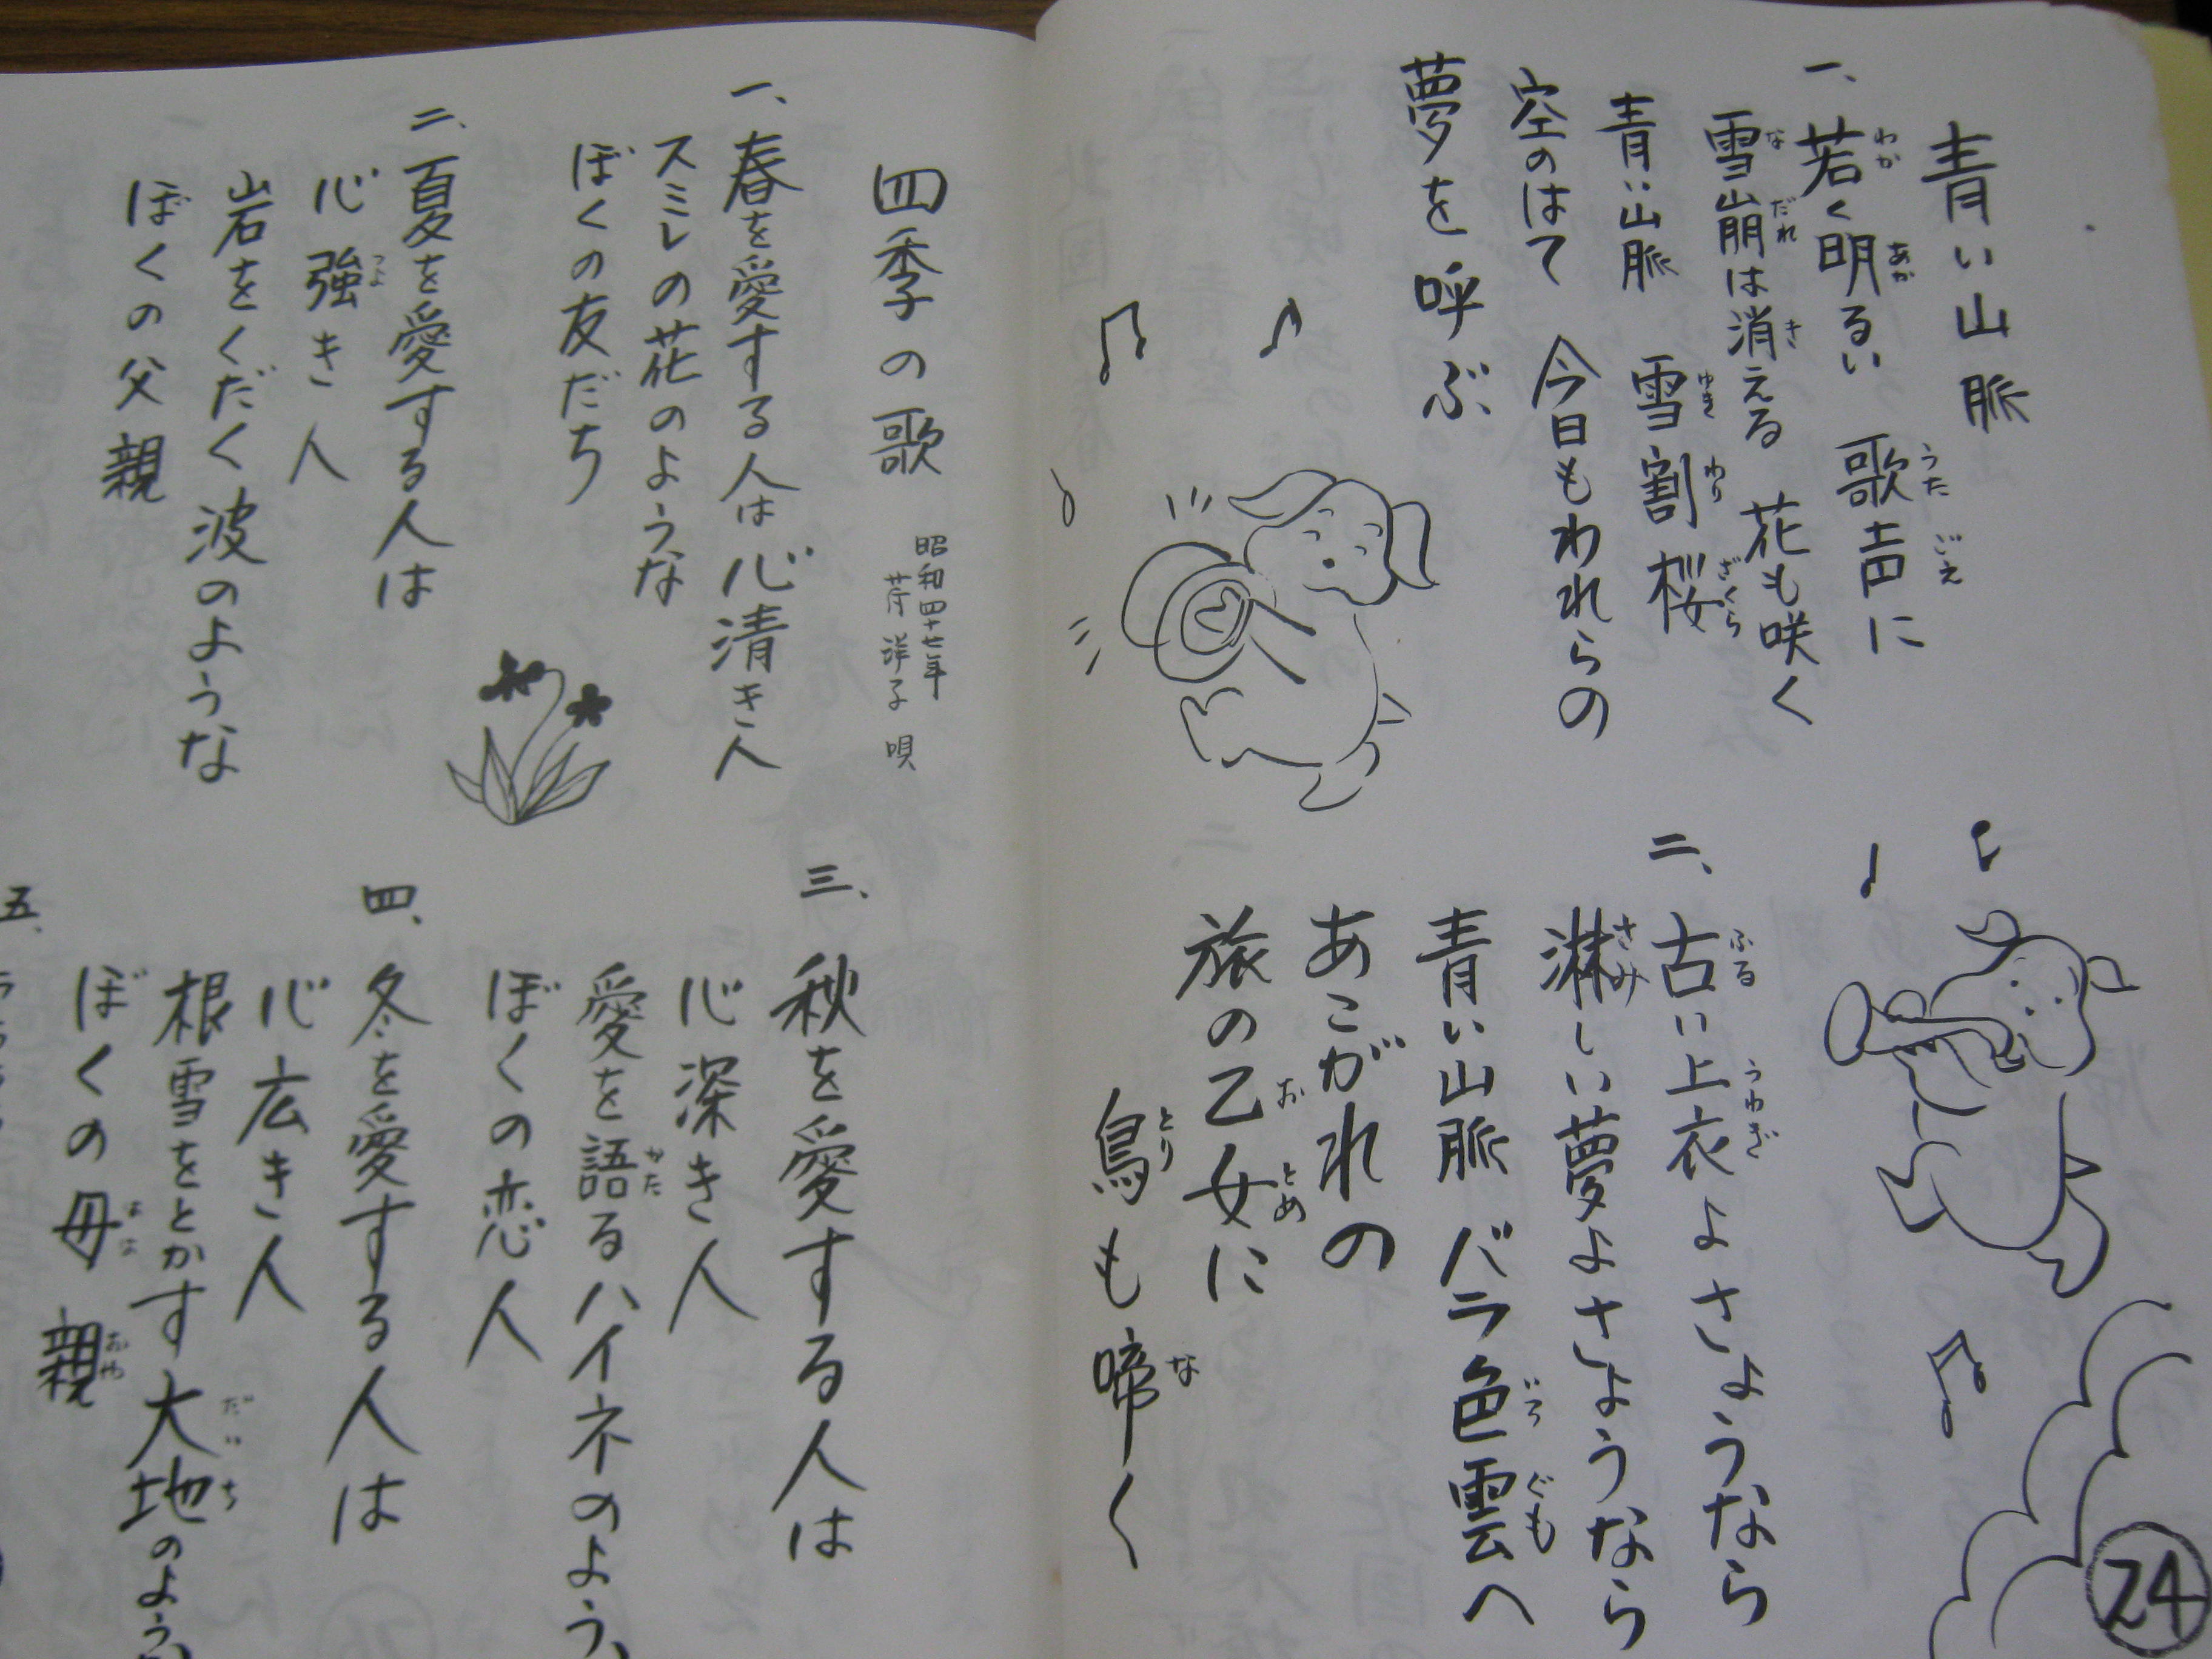 青い山脈
一、若く明るい 歌声に
雪崩は消える 花も咲く
青い山脈 雪割桜
空のはて 今日もわれらの
夢を呼ぶ
二、古い上衣よさようなら
淋しい夢よさようなら
青い山脈 バラ色雲へ
あこがれの
旅の乙女に
鳥も啼く
24
四季の歌
昭和四十七年
芹洋子 唄
一、春を愛する人は心清き人
スミレの花のような
ぼくの友だち
二、夏を愛する人は
心強き人
岩をくだく波のような
ぼくの父親
三、秋を愛する人は
心深き人
愛を語るハイネのよう
ぼくの恋人
四、冬を愛する人は
心広き人
根雪をとかす大地のよう
ぼくの母親
五、